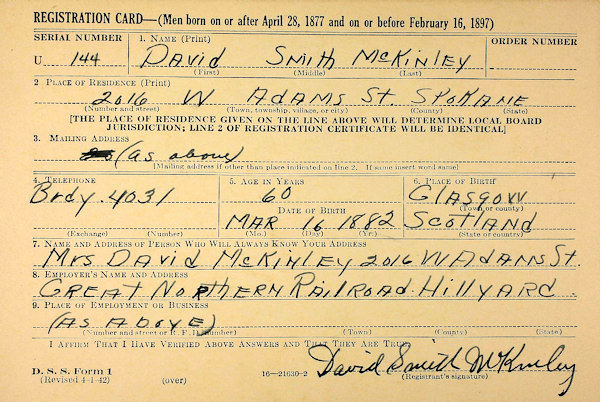 REGISTRATION CARD—(Men born on or after April 28, 1877 and on or before February 16, 1897)
SERIAL NUMBER 1. NAME (Print) ORDER NUMBER
U 144 DAVID SMITH MCKINLEY
(First) (Middle) (Last)
2 PLACE OF RESIDENCE (Print)
2016 W ADAMS ST. SPOKANE
(Number and street) (Town, township, village, or city) (County) (State)
[THE PLACE OF RESIDENCE GIVEN ON THE LINE ABOVE WILL DETERMINE LOCAL BOARD
JURISDICTION; LINE 2 OF REGISTRATION CERTIFICATE WILL BE IDENTICAL]
3. MAILING ADDRESS
(as above)
[Mailing address if other than place indicated on line 2. If same insert word same]
4. TELEPHONE 5. AGE IN YEARS 6. PLACE OF BIRTH
Brdy. 4031 60 GLASGOW
(Town or county)
DATE OF BIRTH
MAR 16 1882 SCOTLAND
(Exchange) (Number) (Mo.) (Day) (Yr.) (State or country)
7. NAME AND ADDRESS OF PERSON WHO WILL ALWAYS KNOW YOUR ADDRESS
MRS DAVID MCKINLEY 2016 W ADAMS ST.
8. EMPLOYER'S NAME AND ADDRESS
GREAT NORTHERN RAILROAD HILLYARD
9. PLACE OF EMPLOYMENT OR BUSINESS
(AS ABOVE)
(Number and street or R. F. D. number) (Town) (County) (State)
I AFFIRM THAT I HAVE VERIFIED ABOVE ANSWERS AND THAT THEY ARE TRUE.
David Smith McKinley
D. S. S. Form 1
(Revised 4-1-42) (over) 16—21630-2 (Registrant's signature)